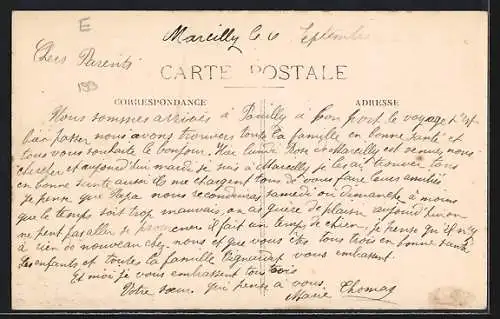 E
Mareilly le 6 Septembre
Chers Parents
199
CARTE POSTALE
CORRESPONDANCE ADRESSE
Nous sommes arrivés à à bon port le voyage s'est
bien passer nous avons trouvers toute la famille en bonne santé et
tous vous souhaite le bonjour. Hier lundi Mareilly est venue nous
chercher et aujourd'hui mardi je suis à Mareilly je les ai trouver tous
en bonne sante aussi Ils me chargent tous de vous faire leurs amitiés
je pense que Papa nous reconduiras samedi ou dimanche à moins
que le temps soit trop mauvais, on as guère de plaisir aujourd'hui on
ne peut pas aller se promener il fait un temps de chien, je pense qu'il n'y
à rien de nouveau chez nous et que vous êtes tous trois en bonne santé
Les enfants et toute la famille vous embrassent.
Et moi je vous embrassent tous trois
Votre sœur qui pense à vous
Marie Thomas